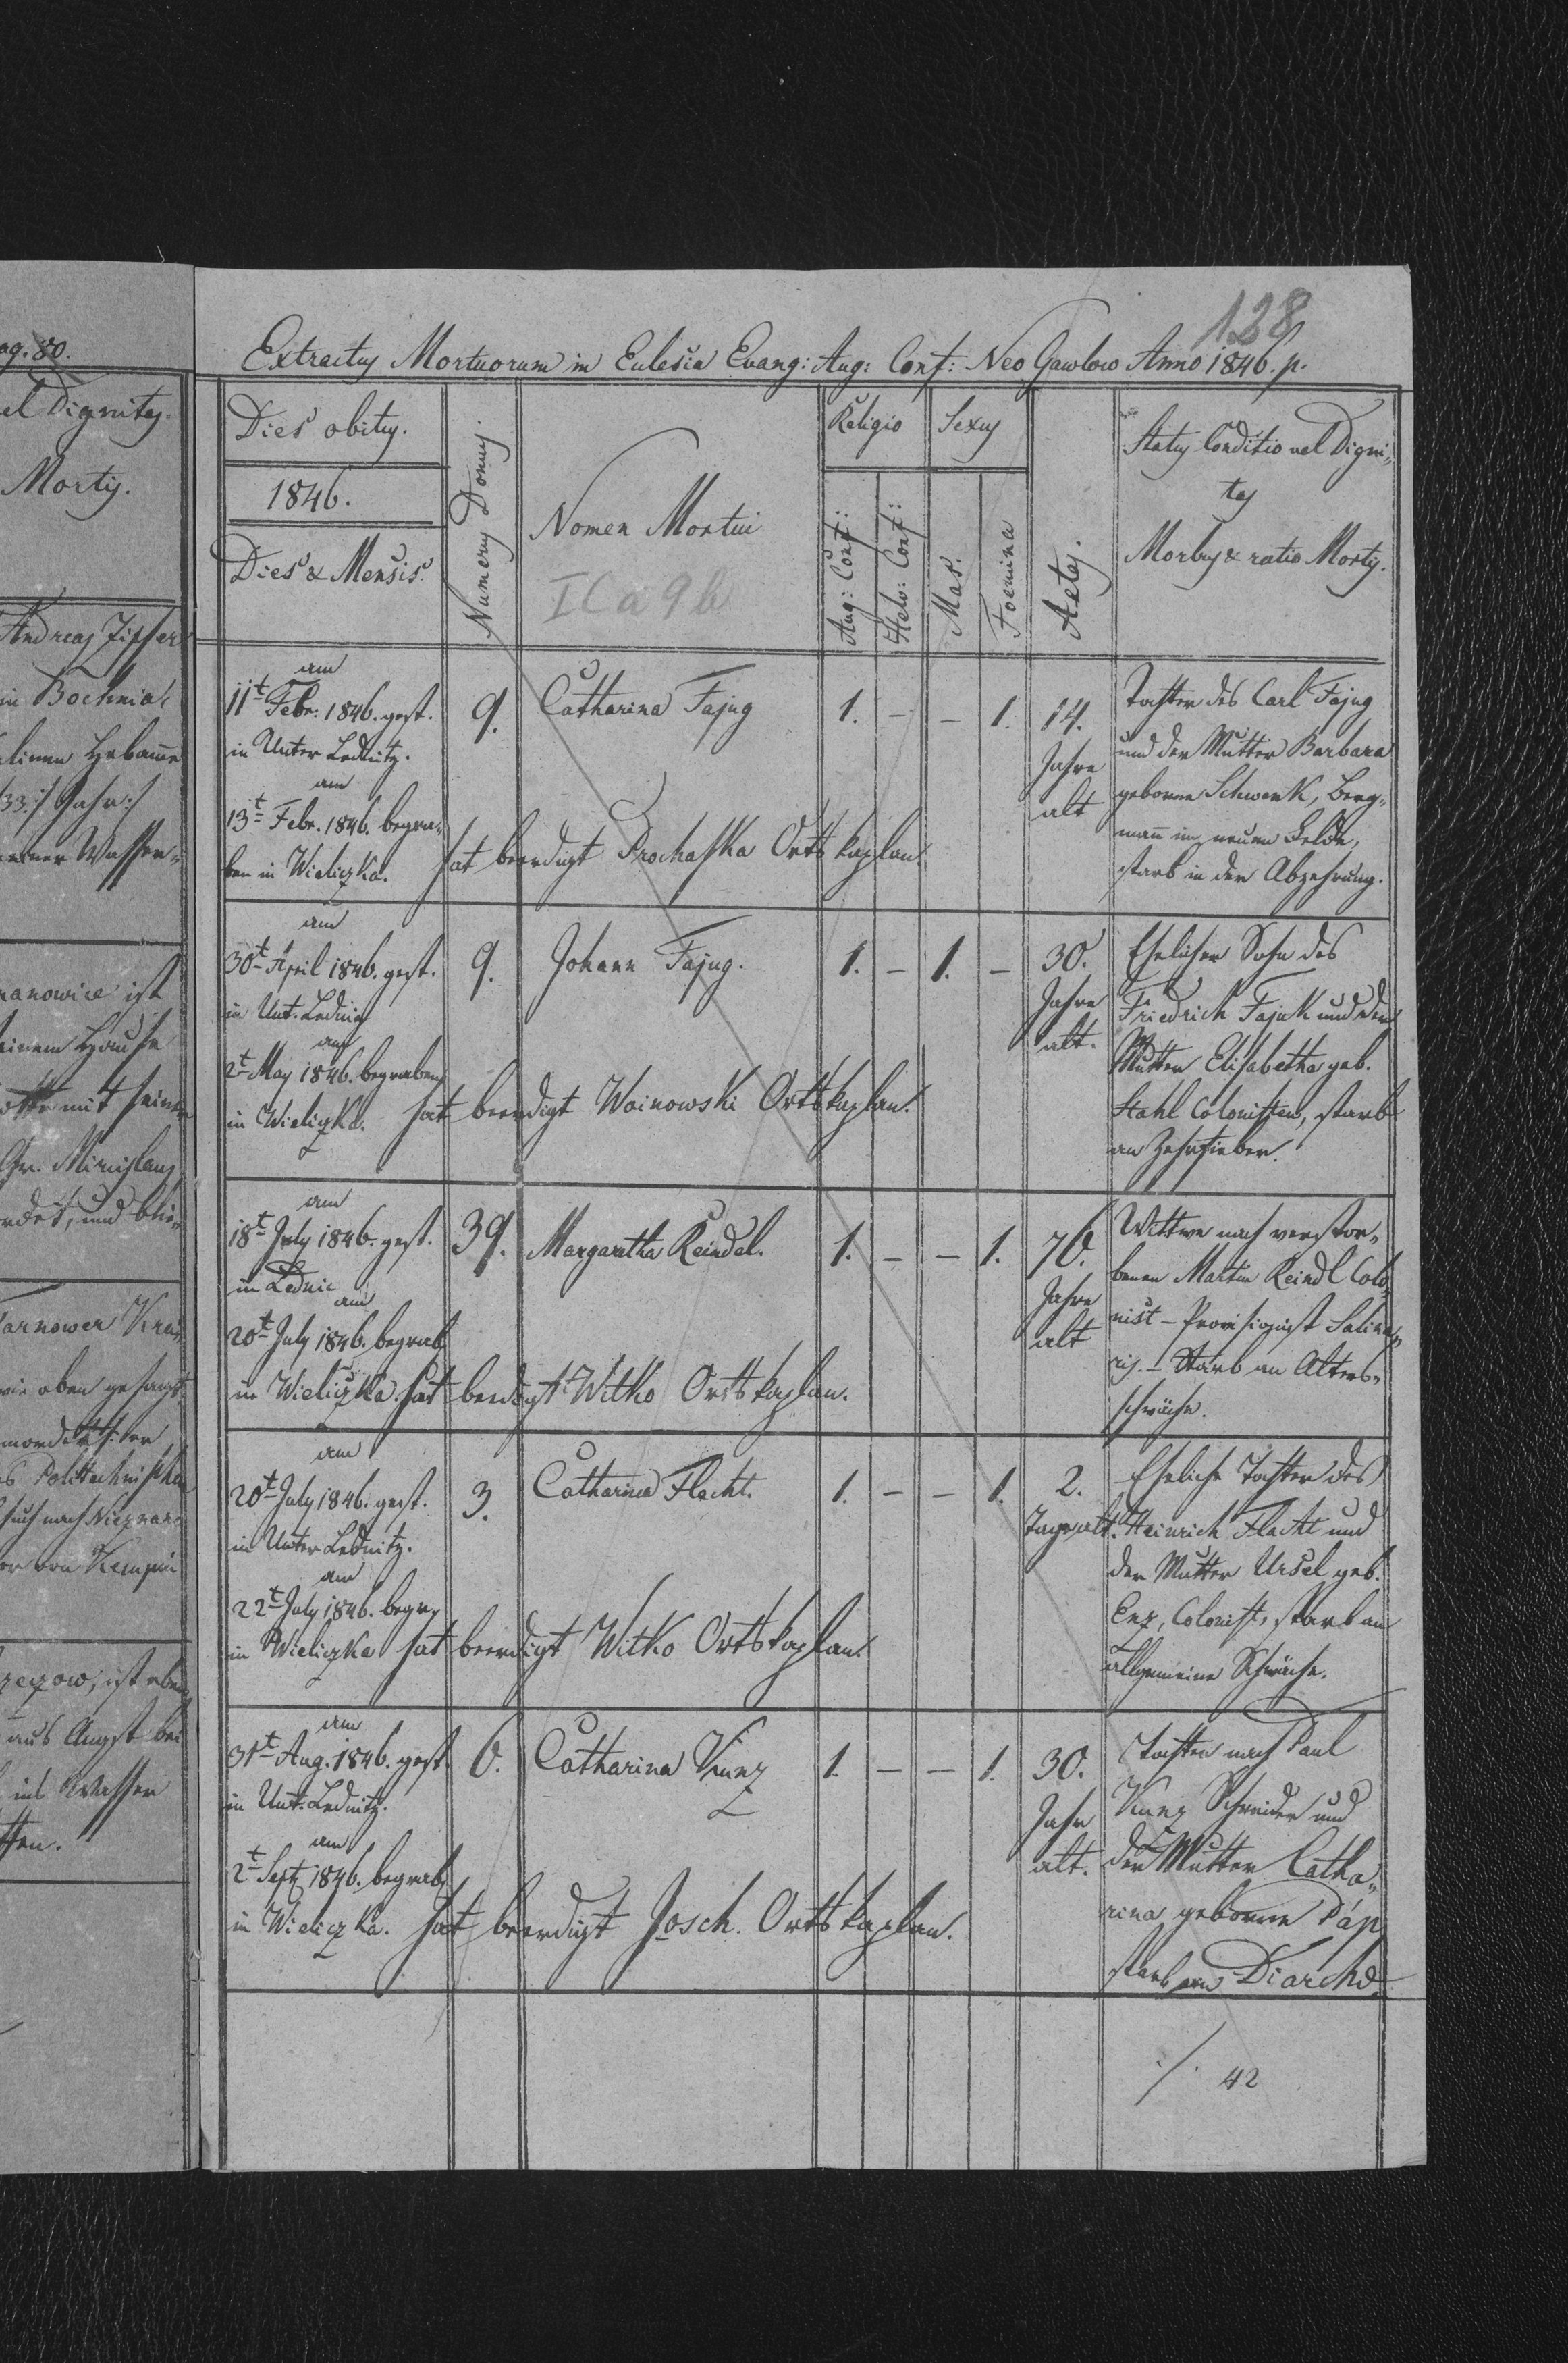 ag. 80.
el Dignitas.
Mortis.
Andreas Zipser
in Bochnia
elinen Hebamme
33 Jahr
einer Wasser-
manowice ist
einem Hause
mit seiner
Gr. Miroslaus
Tarnower Krei
wie oben gesagt
s Politechnischen
such nach Nieznano
or von Kempin
aus Angst bei
ins Wasser
128
Extractus Mortuorum in Eclesia Evang: Aug: Conf: Neo Gawlow Anno 1846. p.
Dies obitus.
1846.
Dies & Mensis.
Numerus Domus.
Nomen Mortui
I C a 9 b
Religio
Aug: Conf:
Helv: Conf:
Sexus
Mas.
Foemina
Aetas.
Status Conditio vel Digni„
tas
Morbus & ratio Mortis.
am
11t Febr: 1846. gest.
in Unter Lednitz.
am
13t Febr. 1846. begra„
ben in Wieliczka.
9.
Catharina Fajug
1. – – 1.
14.
Jahre
alt
Tochter des Carl Fajug
und der Mutter Barbara
geborne Schwenk, Berg„
mann im neuen Felde,
starb in der Abzehrung.
hat beerdigt Prochaska Orts kaplan
am
30t April 1846. gest.
in Unt. Lednitz
am
2t May 1846. begraben
in Wieliczka.
9.
Johann Fajug.
1. – 1. –
30.
Jahre
alt.
Ehelicher Sohn des
Friedrich Fajuk und der
Mutter Elisabetha geb.
Stahl Colonisten, starb
an Zehrfieber.
hat beerdigt Woinowski Ortskaplan.
am
18t July 1846. gest.
in Lednic
am
20t July 1846. begrab
in Wieliczka
39.
Margaretha Reindel.
1. – – 1.
76.
Jahre
alt
Wittwe nach verstor„
benen Martin Reindl Colo„
nist – Provisionist Salina„
ris. – Starb an Alters„
schwäche.
hat beerdigt Witko Ortskaplan.
am
20t July 1846. gest.
in Unter Lednitz.
am
22t July 1846. begr.
in Wieliczka
3.
Catharina Flacht.
1. – – 1.
2.
Tage alt.
Eheliche Tochter des
Heinrich Flacht und
der Mutter Ursel geb.
Enz, Colonist, starb an
allgemeine Schwäche.
hat beerdigt Witko Ortskaplan.
am
31t Aug. 1846. gest.
in Unt. Lednitz.
am
2t Sept 1846. begrab
in Wieliczka.
6.
Catharina Kunz
1. – – 1.
30.
Jahr
alt.
Tochter nach Paul
Kunz Schneider und
der Mutter Catha„
rina geborne Päp
starb an Diarchö
hat beerdigt Josch. Ortskaplan.
./. 42